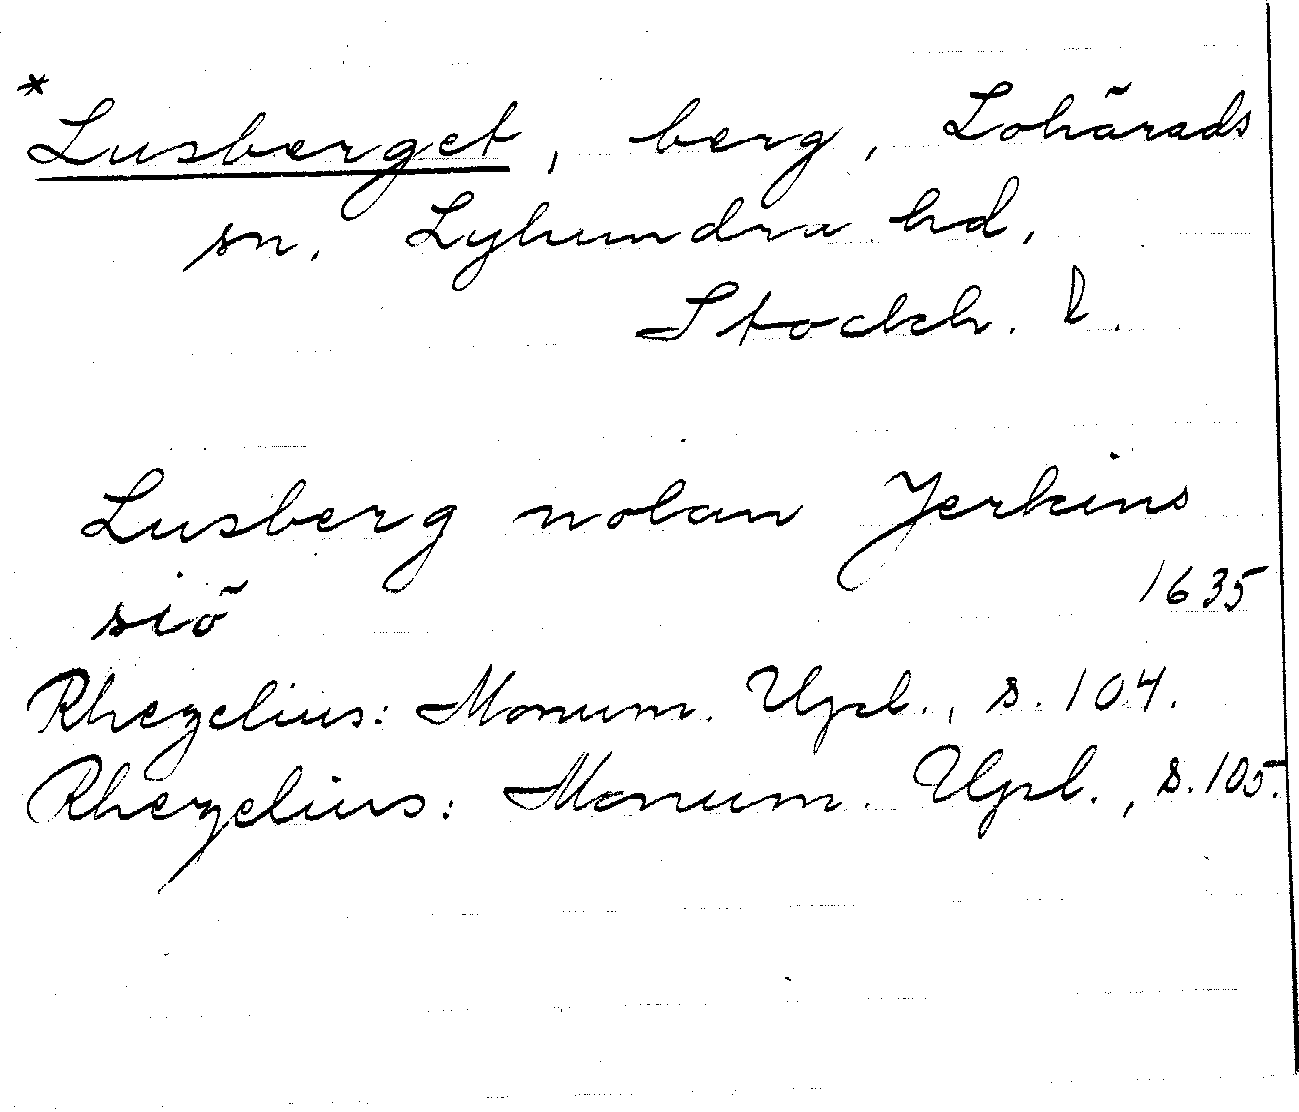 * Lusberget, berg, Lohärads
sn. Lyhundra hd,
Stockh. l.
Lusberg nolan Jerkins
siö 1635
Rhezelius: Monum. Upl., s. 104.
Rhezelius: Monum. Upl., s. 105.